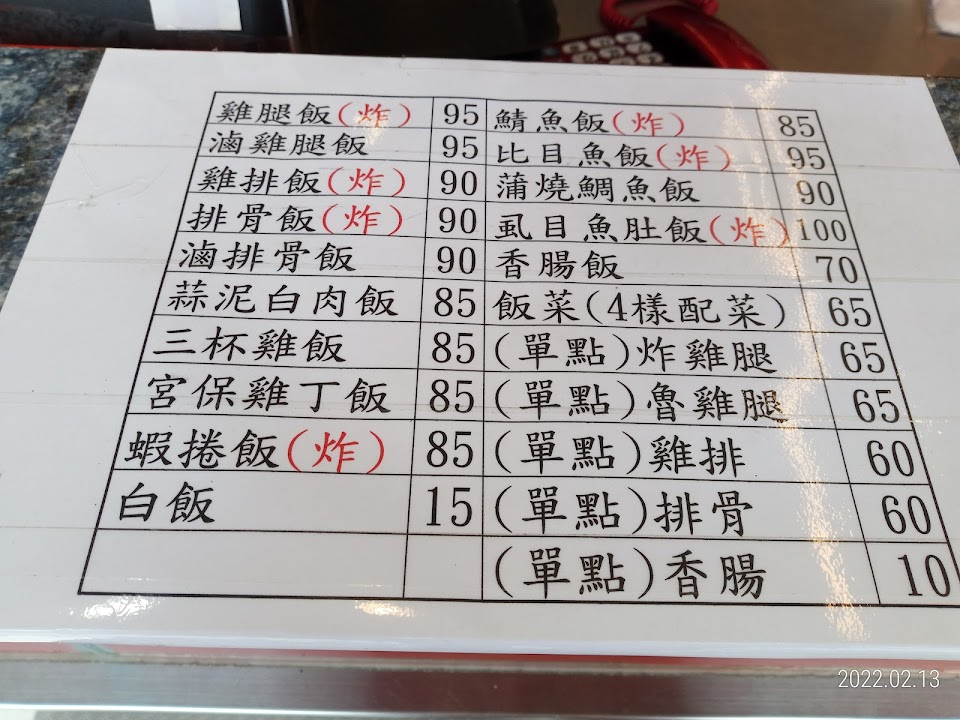 雞腿飯(炸) 95 鯖魚飯(炸) 85
滷雞腿飯 95 比目魚飯(炸) 95
雞排飯(炸) 90 蒲燒鯛魚飯 90
排骨飯(炸) 90 虱目魚肚飯(炸) 100
滷排骨飯 90 香腸飯 70
蒜泥白肉飯 85 飯菜(4樣配菜) 65
三杯雞飯 85 (單點)炸雞腿 65
宮保雞丁飯 85 (單點)魯雞腿 65
蝦捲飯(炸) 85 (單點)雞排 60
白飯 15 (單點)排骨 60
(單點)香腸 10
2022.02.13